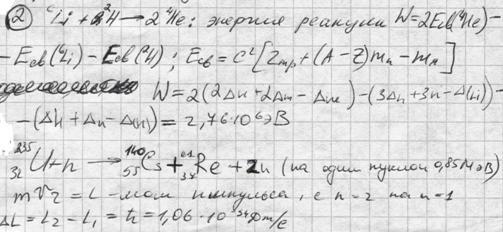 ② ⁶Li + ²H → 2 ⁴He : энергия реакции W = 2Eсв(⁴He) –
– Eсв(⁶Li) – Eсв(²H) ; Eсв = c² [Zmp + (A – Z)mn – mя]
W = 2(2Δн + 2Δn – ΔHe) – (3Δn + 3н – Δ(Li)) –
– (Δн + Δn – Δн) = 2,76·10⁶ эВ
²³⁵U + n → ¹⁴⁰₅₅Cs + ⁹⁴₃₇Re + 2n (на один нуклон 0,85 МэВ)
mVr = L – мом импульса, с n = 2 на n = 1
ΔL = L₂ – L₁ = ħ = 1,06 · 10⁻³⁴